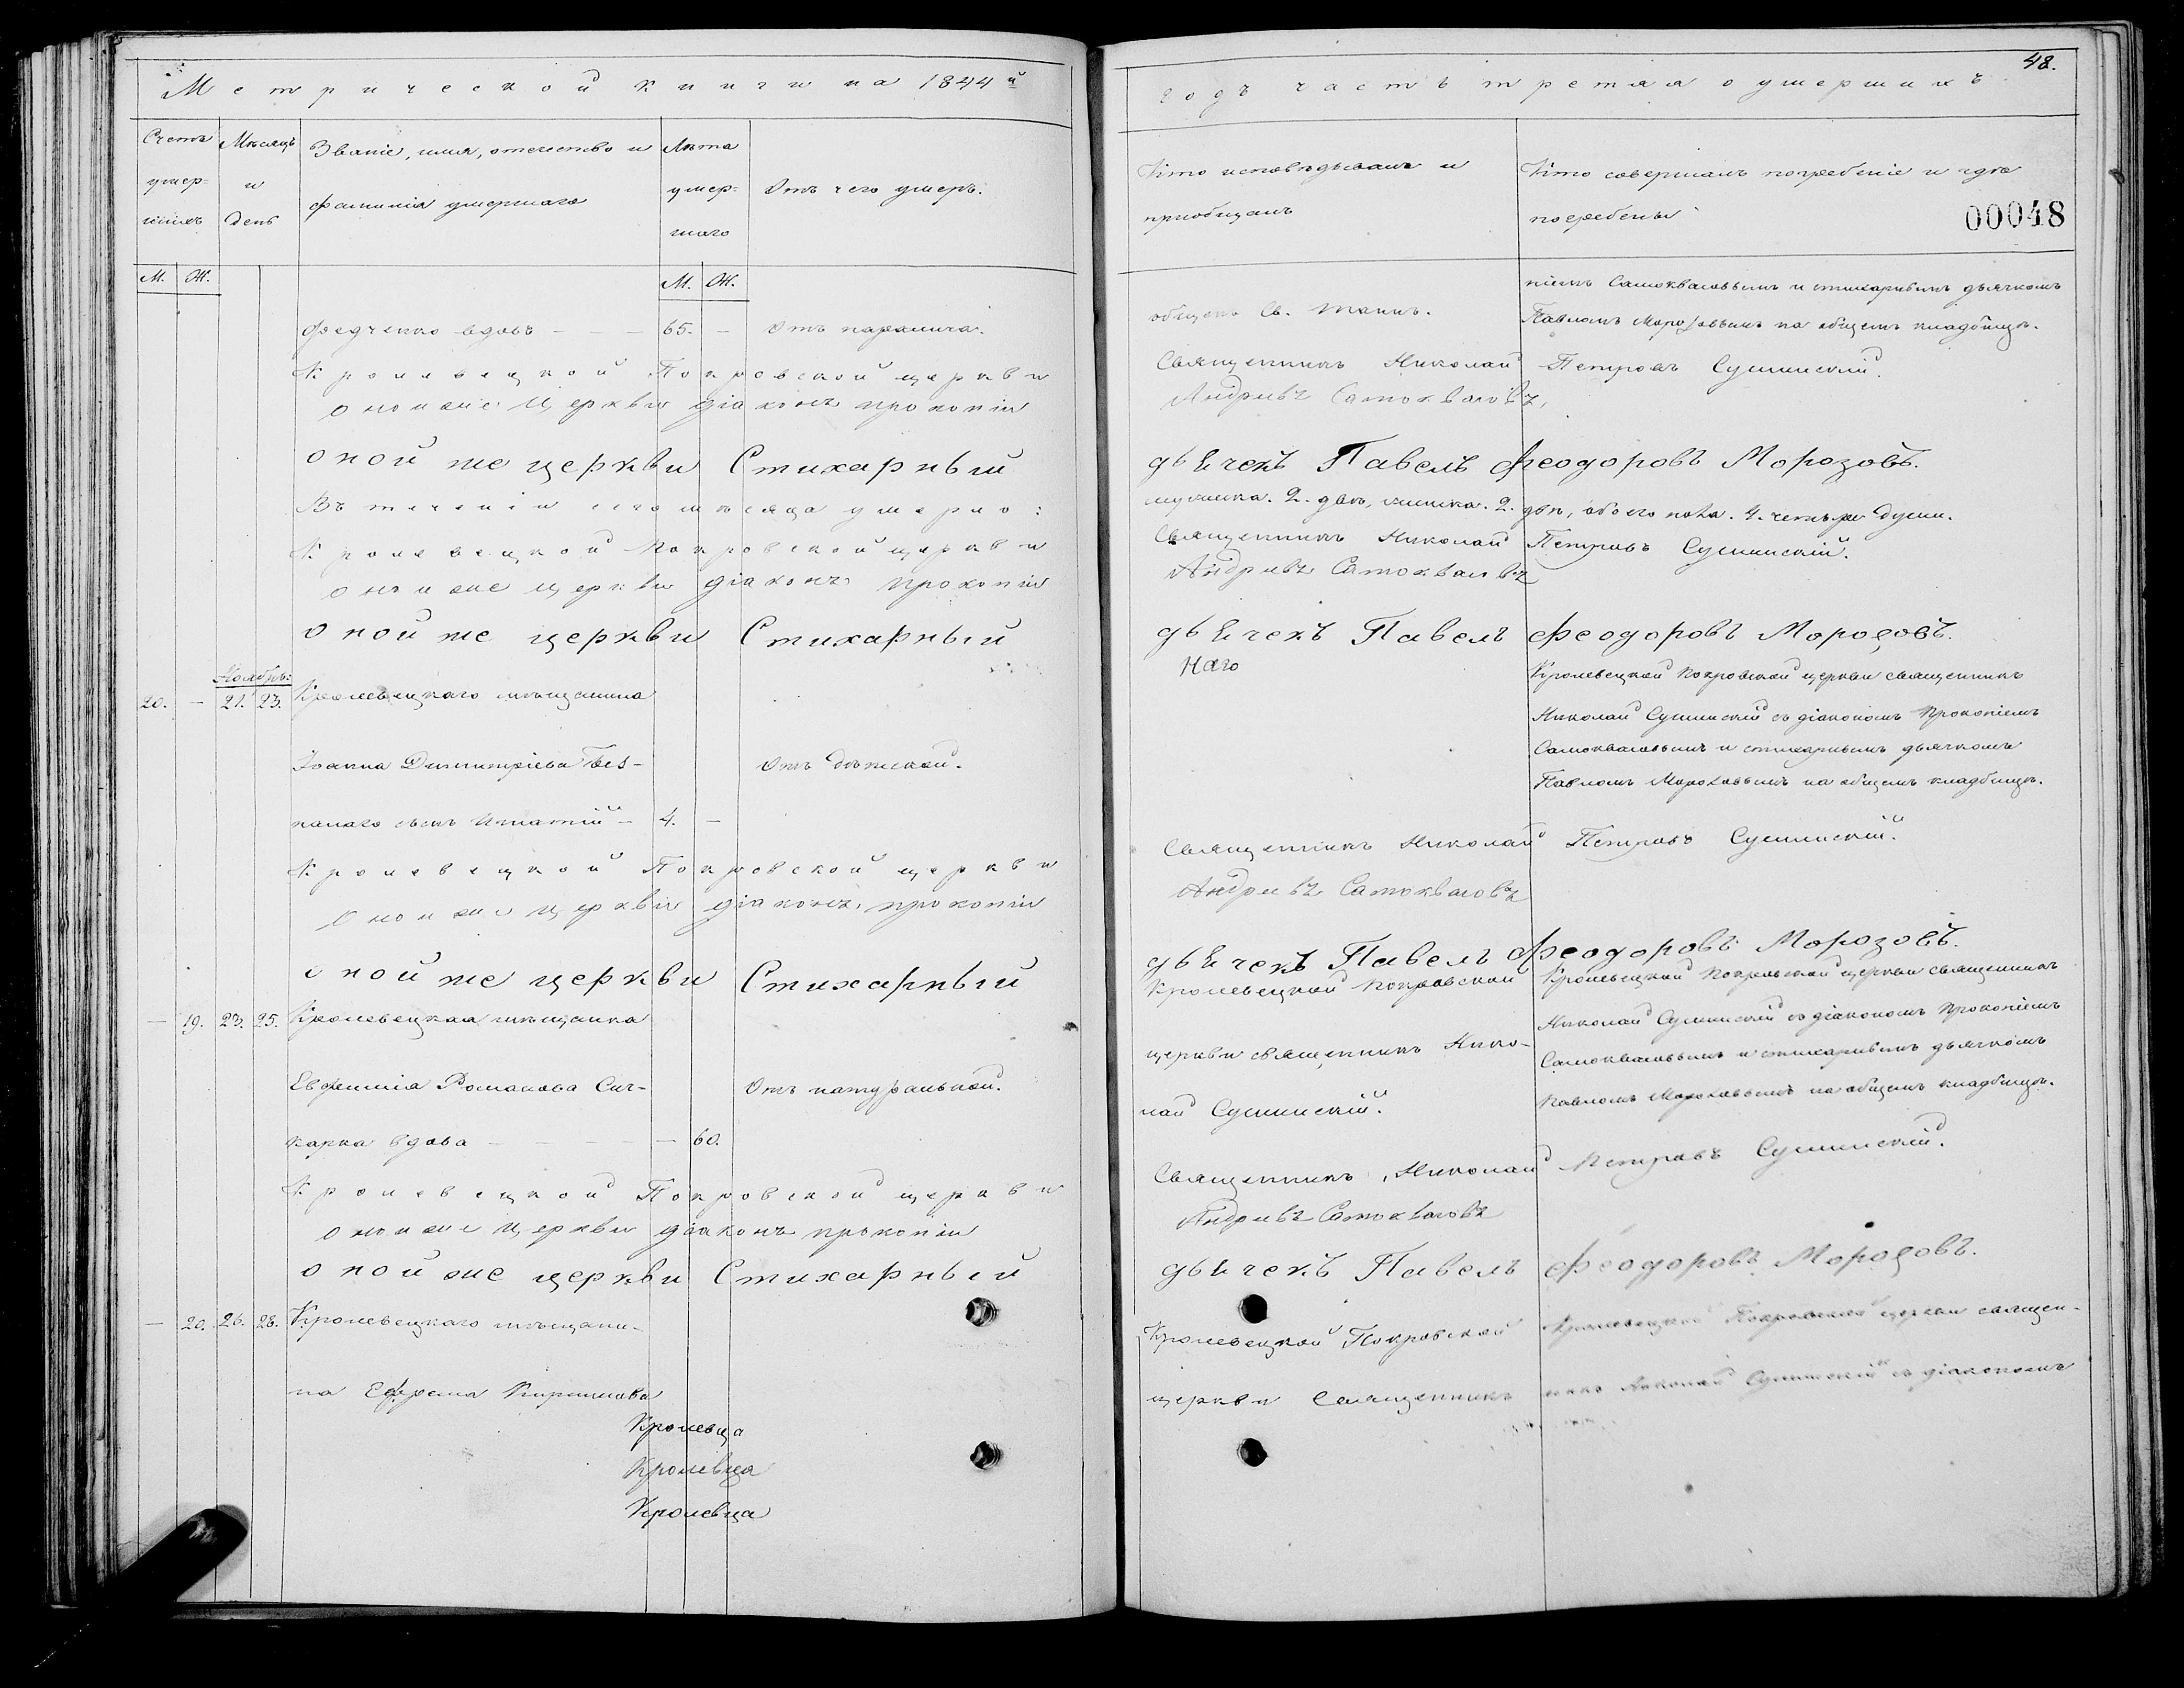 Метрической книги на 1844й
годъ часть третяя о умершихъ
48.
Счетъ умер-шихъ
Мѣсяцъ и День
Званіе, имя, отечество и
фамилія умершаго
Лѣта умер-шаго
Отъ чего умеръ.
Кто исповѣдывалъ и
пріобщалъ
Кто совершалъ погребеніе и гдѣ
погребены
00048
М. Ж.
М. Ж.
Федченко вдовъ - - - 65. - Отъ паралича.
общенъ Св. Таинъ.
піемъ Самоквасовымъ и стихарнымъ дьячкомъ
Павломъ Морозовымъ на общемъ кладбищѣ.
Кролевецкой Покровской церкви
Священникъ Николай Петровъ Сушинскій.
оной же Церкви діаконъ прокопій
Андріевъ Самоквасовъ,
оной же церкви Стихарный
дьячекъ Павелъ Феодоровъ Морозовъ.
Въ теченіи сего мѣсяца умерло:
мужеска. 2. два, женска. 2. двѣ, обоего пола. 4. четыре души.
Кролевецкой Покровской церкви
Священникъ Николай Петровъ Сушинскій.
оной же церкви діаконъ прокопій
Андріевъ Самоквасовъ
оной же церкви Стихарный
дьячекъ Павелъ Феодоровъ Морозовъ.
Ноябрь:
20. - 21. 23. Кролевецкаго мѣщанина
Іоанна Димитріева Без-
Отъ дѣтской.
палаго сынъ Игнатій - 4. -
Кролевецкой Покровской церкви священникъ
Николай Сушинскій съ діакономъ Прокопіемъ
Самоквасовымъ и стихарнымъ дьячкомъ
Павломъ Морозовымъ на общемъ кладбищѣ.
Кролевецкой Покровской церкви
Священникъ Николай Петровъ Сушинскій.
оной же церкви діаконъ прокопій
Андріевъ Самоквасовъ
оной же церкви Стихарный
дьячекъ Павелъ Феодоровъ Морозовъ.
- 19. 23. 25. Кролевецкая мѣщанка
Евфимія Романова Сич-
Отъ натуральной.
карка вдова - - - - - 60.
Кролевецкой Покровской
церкви священникъ Нико-
лай Сушинскій.
Кролевецкой Покровской церкви священникъ
Николай Сушинскій съ діакономъ Прокопіемъ
Самоквасовымъ и стихарнымъ дьячкомъ
Павломъ Морозовымъ на общемъ кладбищѣ.
Кролевецкой Покровской церкви
Священникъ Николай Петровъ Сушинскій.
оной же церкви діаконъ прокопій
Андріевъ Самоквасовъ
оной же церкви Стихарный
дьячекъ Павелъ Феодоровъ Морозовъ.
- 20. 26. 28. Кролевецкаго мѣщани-
на Ефрема Кириллова
Кролевецкой Покровской
церкви Священникъ
Кролевецкой Покровской церкви священ-
никъ Николай Сушинскій съ діакономъ
Кролевца
Кролевца
Кролевца